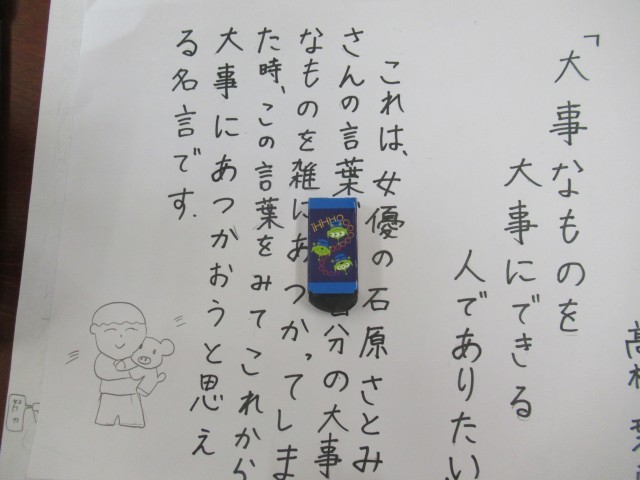 「大事なものを
大事にできる
人でありたい
これは、女優の石原さとみ
さんの言葉
分の大事
なものを雑にあつかってしま
た時、この言葉をみてこれから
大事にあつかおうと思え
る名言です.